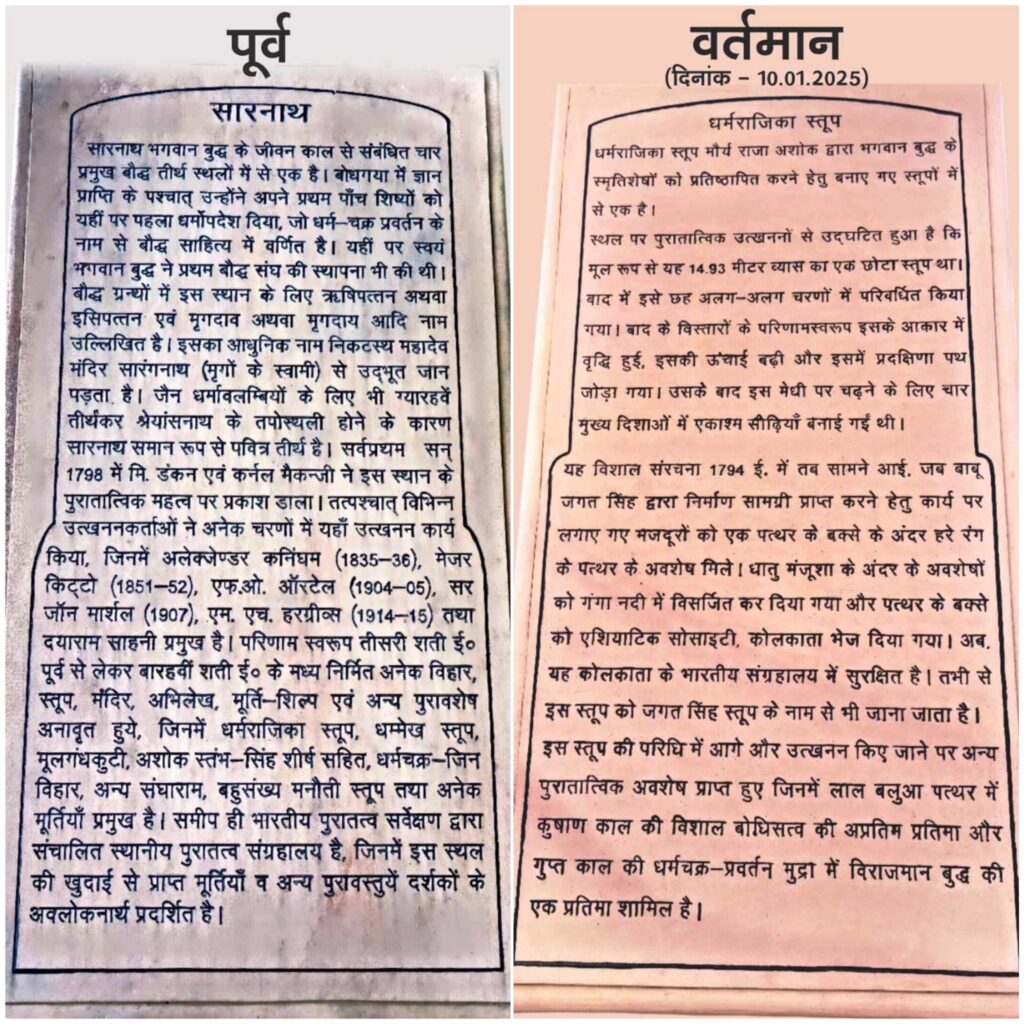 पूर्व
सारनाथ
सारनाथ भगवान बुद्ध के जीवन काल से संबंधित चार
प्रमुख बौद्ध तीर्थ स्थलों में से एक है। बोधगया में ज्ञान
प्राप्ति के पश्चात् उन्होंने अपने प्रथम पाँच शिष्यों को
यहीं पर पहला धर्मोपदेश दिया, जो धर्म–चक्र प्रवर्तन के
नाम से बौद्ध साहित्य में वर्णित है। यहीं पर स्वयं
भगवान बुद्ध ने प्रथम बौद्ध संघ की स्थापना भी की थी।
बौद्ध ग्रन्थों में इस स्थान के लिए ऋषिपत्तन अथवा
इसिपत्तन एवं मृगदाव अथवा मृगदाय आदि नाम
उल्लिखित है। इसका आधुनिक नाम निकटस्थ महादेव
मंदिर सारंगनाथ (मृगों के स्वामी) से उद्भूत जान
पड़ता है। जैन धर्मावलम्बियों के लिए भी ग्यारहवें
तीर्थंकर श्रेयांसनाथ के तपोस्थली होने के कारण
सारनाथ समान रूप से पवित्र तीर्थ है। सर्वप्रथम सन्
1798 में मि. डंकन एवं कर्नल मैकन्जी ने इस स्थान के
पुरातात्विक महत्व पर प्रकाश डाला। तत्पश्चात् विभिन्न
उत्खननकर्ताओं ने अनेक चरणों में यहाँ उत्खनन कार्य
किया, जिनमें अलेक्जेण्डर कनिंघम (1835–36), मेजर
किट्टो (1851–52), एफ.ओ. ऑरटेल (1904–05), सर
जॉन मार्शल (1907), एम. एच. हरग्रीव्स (1914–15) तथा
दयाराम साहनी प्रमुख है। परिणाम स्वरूप तीसरी शती ई०
पूर्व से लेकर बारहवीं शती ई० के मध्य निर्मित अनेक विहार,
स्तूप, मंदिर, अभिलेख, मूर्ति–शिल्प एवं अन्य पुरावशेष
अनावृत हुये, जिनमें धर्मराजिका स्तूप, धम्मेख स्तूप,
मूलगंधकुटी, अशोक स्तंभ–सिंह शीर्ष सहित, धर्मचक्र–जिन
विहार, अन्य संघाराम, बहुसंख्य मनौती स्तूप तथा अनेक
मूर्तियाँ प्रमुख है। समीप ही भारतीय पुरातत्व सर्वेक्षण द्वारा
संचालित स्थानीय पुरातत्व संग्रहालय है, जिनमें इस स्थल
की खुदाई से प्राप्त मूर्तियाँ व अन्य पुरावस्तुयें दर्शकों के
अवलोकनार्थ प्रदर्शित है।
वर्तमान
(दिनांक – 10.01.2025)
धर्मराजिका स्तूप
धर्मराजिका स्तूप मौर्य राजा अशोक द्वारा भगवान बुद्ध के
स्मृतिशेषों को प्रतिष्ठापित करने हेतु बनाए गए स्तूपों में
से एक है।
स्थल पर पुरातात्विक उत्खननों से उद्घटित हुआ है कि
मूल रूप से यह 14.93 मीटर व्यास का एक छोटा स्तूप था।
बाद में इसे छह अलग–अलग चरणों में परिवर्धित किया
गया। बाद के विस्तारों के परिणामस्वरूप इसके आकार में
वृद्धि हुई, इसकी ऊंचाई बढ़ी और इसमें प्रदक्षिणा पथ
जोड़ा गया। उसके बाद इस मेधी पर चढ़ने के लिए चार
मुख्य दिशाओं में एकाश्म सीढ़ियाँ बनाई गईं थी।
यह विशाल संरचना 1794 ई. में तब सामने आई, जब बाबू
जगत सिंह द्वारा निर्माण सामग्री प्राप्त करने हेतु कार्य पर
लगाए गए मजदूरों को एक पत्थर के बक्से के अंदर हरे रंग
के पत्थर के अवशेष मिले। धातु मंजूशा के अंदर के अवशेषों
को गंगा नदी में विसर्जित कर दिया गया और पत्थर के बक्से
को एशियाटिक सोसाइटी, कोलकाता भेज दिया गया। अब,
यह कोलकाता के भारतीय संग्रहालय में सुरक्षित है। तभी से
इस स्तूप को जगत सिंह स्तूप के नाम से भी जाना जाता है।
इस स्तूप की परिधि में आगे और उत्खनन किए जाने पर अन्य
पुरातात्विक अवशेष प्राप्त हुए जिनमें लाल बलुआ पत्थर में
कुषाण काल की विशाल बोधिसत्व की अप्रतिम प्रतिमा और
गुप्त काल की धर्मचक्र–प्रवर्तन मुद्रा में विराजमान बुद्ध की
एक प्रतिमा शामिल है।